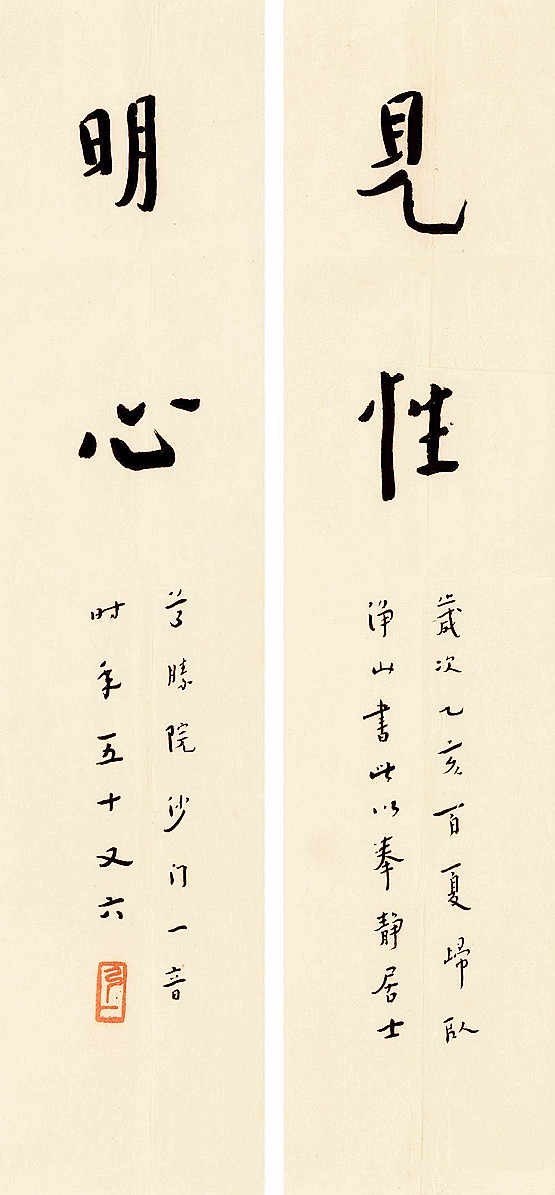 見性
歲次乙亥首夏歸臥
淨山書此以奉靜居士
明心
尊勝院沙门一音
时年五十又六
弘一